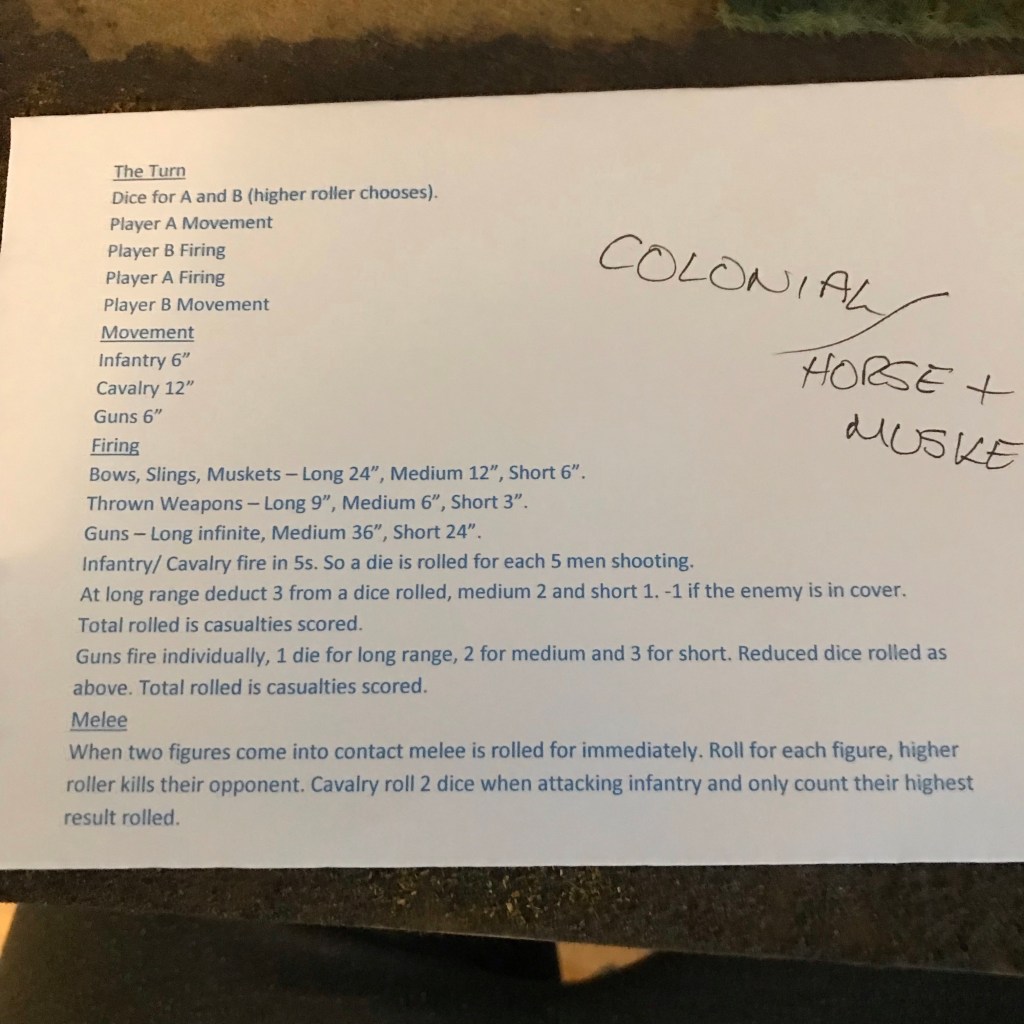 The Turn
Dice for A and B (higher roller chooses).
Player A Movement
Player B Firing
Player A Firing
Player B Movement
Movement
Infantry 6”
Cavalry 12”
Guns 6”
Firing
Bows, Slings, Muskets – Long 24”, Medium 12”, Short 6”.
Thrown Weapons – Long 9”, Medium 6”, Short 3”.
Guns – Long infinite, Medium 36”, Short 24”.
Infantry/ Cavalry fire in 5s. So a die is rolled for each 5 men shooting.
At long range deduct 3 from a dice rolled, medium 2 and short 1. -1 if the enemy is in cover.
Total rolled is casualties scored.
Guns fire individually, 1 die for long range, 2 for medium and 3 for short. Reduced dice rolled as
above. Total rolled is casualties scored.
Melee
When two figures come into contact melee is rolled for immediately. Roll for each figure, higher
roller kills their opponent. Cavalry roll 2 dice when attacking infantry and only count their highest
result rolled.
COLONIAL/
HORSE +
MUSKE